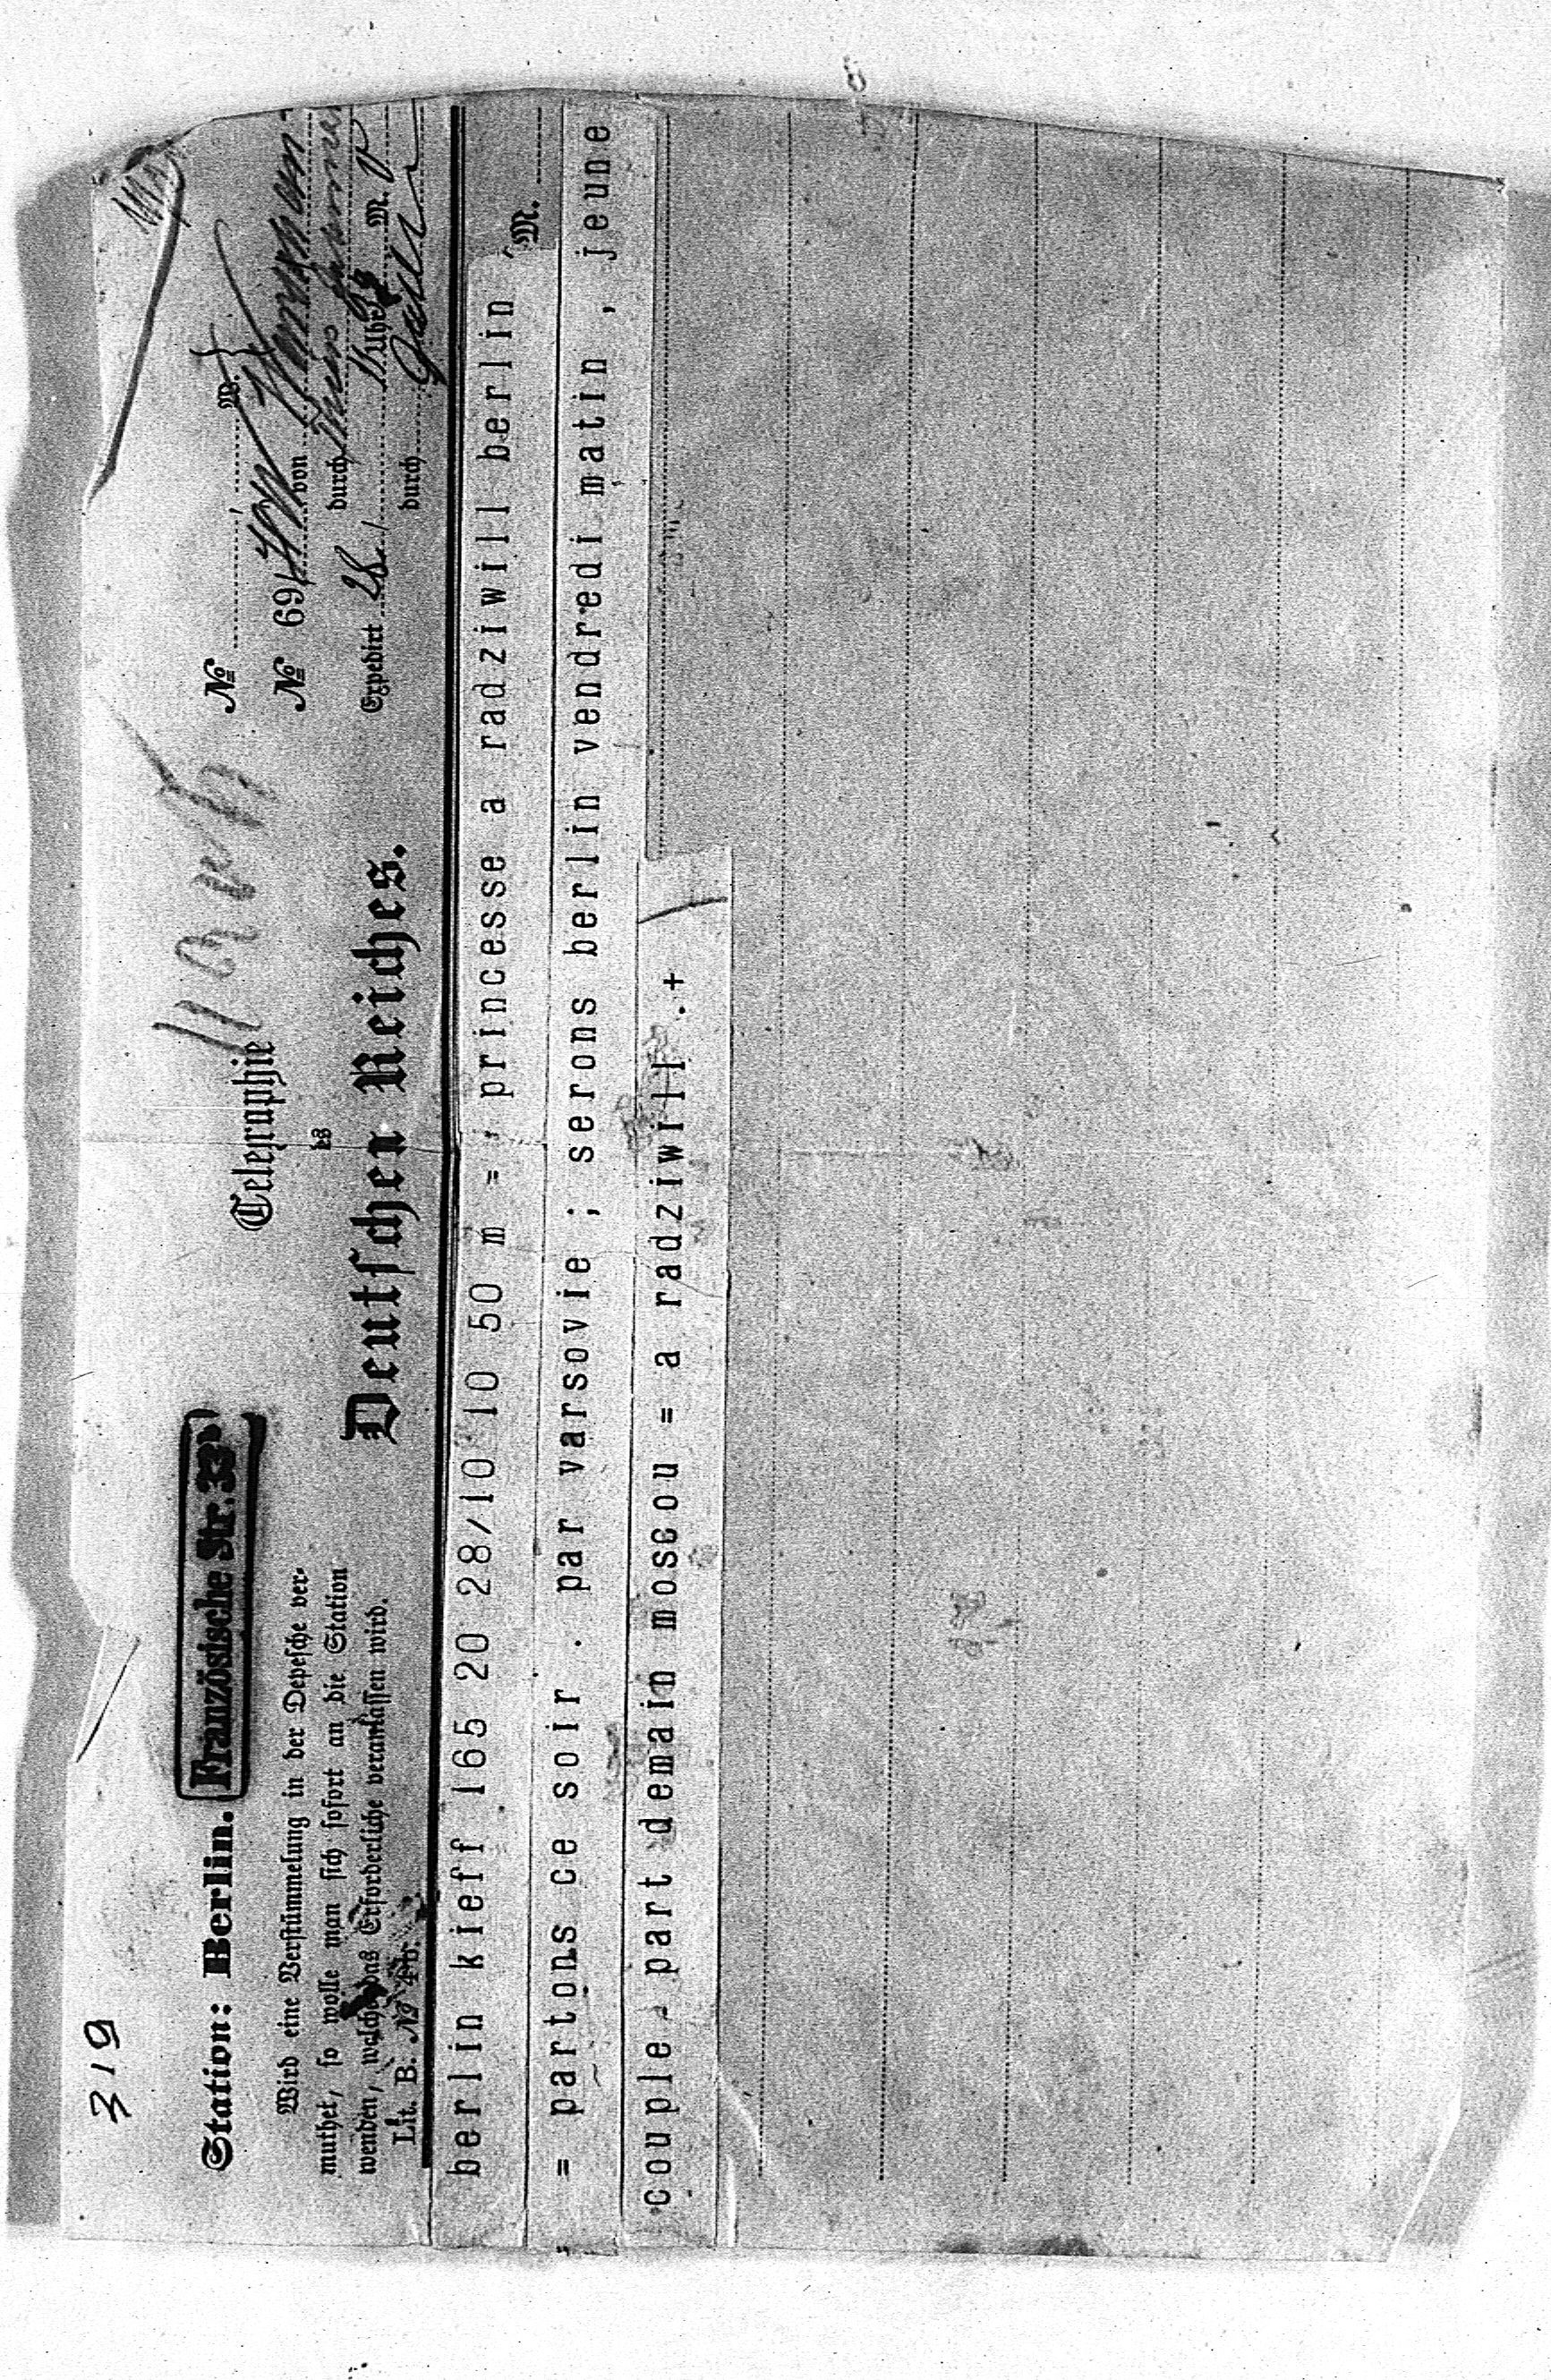 319
Station: Berlin. Französische Str. 33
Telegraphie
Deutschen Reiches.
Wird eine Verstümmelung in der Depesche ver-
muthet, so wolle man sich sofort an die Station
wenden, welche das Erforderliche veranlassen wird.
Lit. B. № 4b.
№ M.
№ 69 von
durch
Expedirt 28/ Uhr M.
durch
berlin kieff 165 20 28/10 10 50 m = , princesse a radziwill berlin
M.
= partons ce soir . par varsovie ; serons berlin vendredi matin , jeune
couple part demain moscou = a radziwill .+